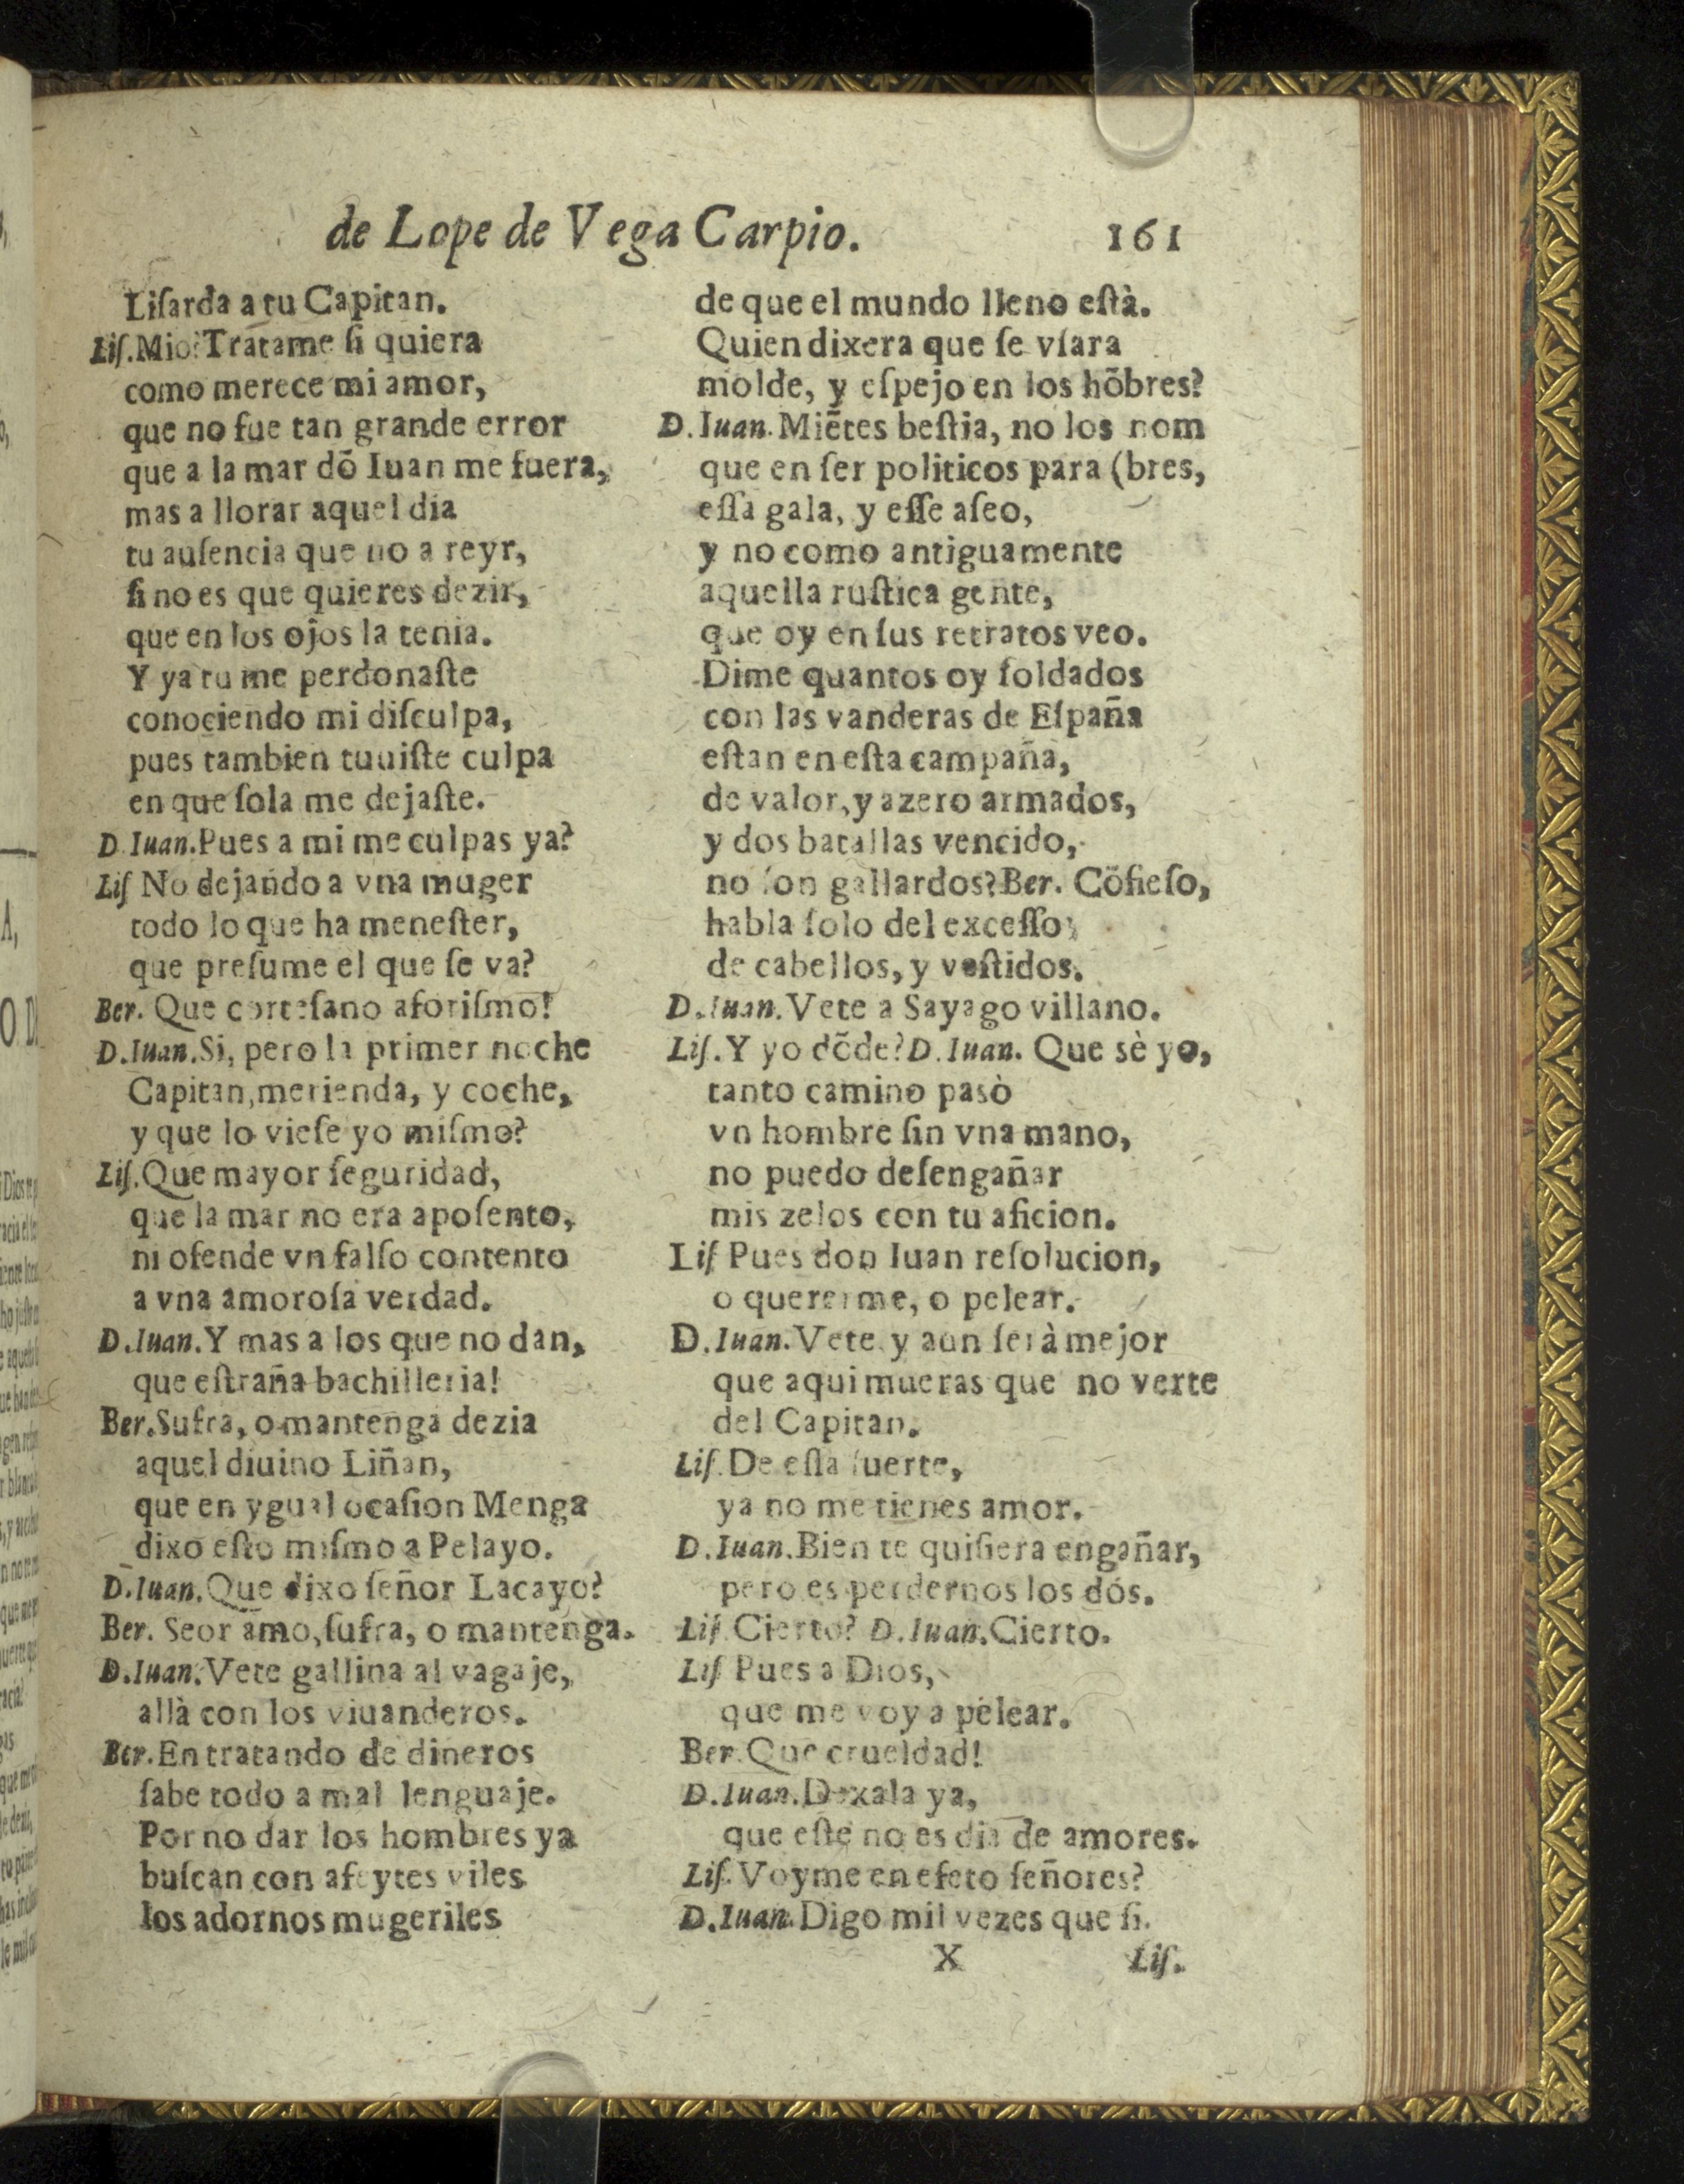 de Lope de Vega Carpio. 161
Liſarda a tu Capitan.
Liſ. Mio? Tratame ſi quiera
como merece mi amor,
que no fue tan grande error
que a la mar dõ Iuan me fuera,
mas a llorar aquel dia
tu auſencia que no a reyr,
ſi no es que quieres dezir,
que en los ojos la tenia.
Y ya tu me perdonaſte
conociendo mi diſculpa,
pues tambien tuuiſte culpa
en que ſola me dejaſte.
D. Iuan. Pues a mi me culpas ya?
Liſ No dejando a vna muger
todo lo que ha meneſter,
que preſume el que ſe va?
Ber. Que corteſano aforiſmo!
D. Iuan. Si, pero la primer noche
Capitan, merienda, y coche,
y que lo vieſe yo miſmo?
Liſ. Que mayor ſeguridad,
que la mar no era apoſento,
ni ofende vn falſo contento
a vna amoroſa verdad.
D. Iuan. Y mas a los que no dan,
que eſtraña bachilleria!
Ber. Sufra, o mantenga dezia
aquel diuino Liñan,
que en ygual ocaſion Menga
dixo eſto miſmo a Pelayo.
D. Iuan. Que dixo ſeñor Lacayo?
Ber. Seor amo, ſufra, o mantenga.
D. Iuan. Vete gallina al vagaje,
allà con los viuanderos.
Ber. En tratando de dineros
ſabe todo a mal lenguaje.
Por no dar los hombres ya
buſcan con afeytes viles
los adornos mugeriles
de que el mundo lleno eſtà.
Quien dixera que ſe vſara
molde, y eſpejo en los hõbres?
D. Iuan. Miẽtes beſtia, no los nom
que en ſer politicos para (bres,
eſſa gala, y eſſe aſeo,
y no como antiguamente
aquella ruſtica gente,
que oy en ſus retratos veo.
Dime quantos oy ſoldados
con las vanderas de Eſpaña
eſtan en eſta campaña,
de valor, y azero armados,
y dos batallas vencido,
no ſon gallardos? Ber. Cõfieſo,
habla ſolo del exceſſo
de cabellos, y veſtidos.
D. Iuan. Vete a Sayago villano.
Liſ. Y yo dõde? D. Iuan. Que sè yo,
tanto camino pasò
vn hombre ſin vna mano,
no puedo deſengañar
mis zelos con tu aficion.
Liſ Pues don Iuan reſolucion,
o quererme, o pelear.
D. Iuan. Vete y aun ſerà mejor
que aqui mueras que no verte
del Capitan.
Liſ. De eſſa ſuerte,
ya no me tienes amor.
D. Iuan. Bien te quiſiera engañar,
pero es perdernos los dos.
Liſ Cierto? D. Iuan. Cierto.
Liſ Pues a Dios,
que me voy a pelear.
Ber. Que crueldad!
D. Iuan. Dexala ya,
que eſte no es dia de amores.
Liſ. Voyme en efeto ſeñores?
D. Iuan. Digo mil vezes que ſi.
X Liſ.